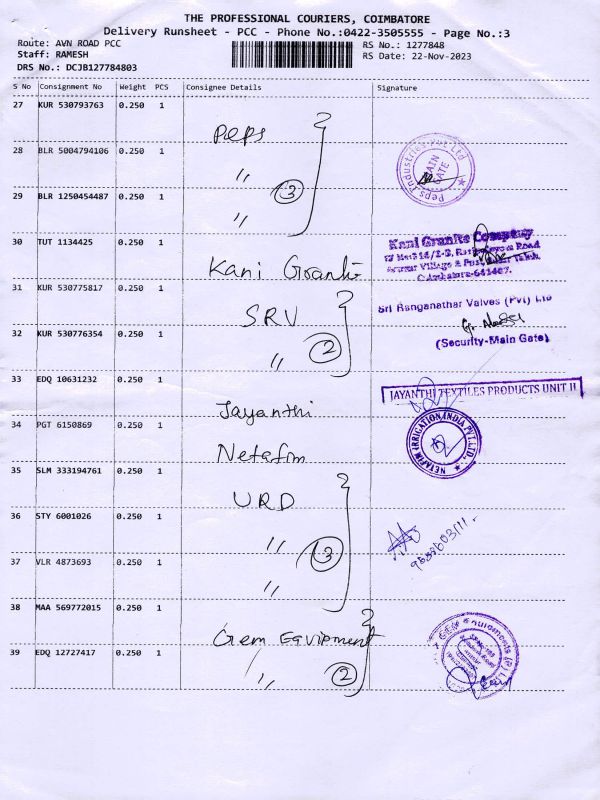 THE PROFESSIONAL COURIERS, COIMBATORE
Delivery Runsheet - PCC - Phone No.:0422-3505555 - Page No.:3
Route: AVN ROAD PCC RS No.: 1277848
Staff: RAMESH RS Date: 22-Nov-2023
DRS No.: DCJB127784803
S No Consignment No Weight PCS Consignee Details Signature
27 KUR 530793763 0.250 1 Peps
28 BLR 5004794106 0.250 1 〃 3 Peps Industries Pvt Ltd MAIN GATE
29 BLR 1250454487 0.250 1 〃
30 TUT 1134425 0.250 1 Kani Granite Kani Granite Company
Coimbatore-641407.
31 KUR 530775817 0.250 1 SRV Sri Ranganathar Valves (Pvt) Ltd
32 KUR 530776354 0.250 1 〃 2 (Security-Main Gate)
33 EDQ 10631232 0.250 1 Jayanthi JAYANTHI TEXTILES PRODUCTS UNIT II
34 PGT 6150869 0.250 1 Netafim NETAFIM IRRIGATION INDIA PVT. LTD.
35 SLM 333194761 0.250 1 URD
36 STY 6001026 0.250 1 〃 3
37 VLR 4873693 0.250 1 〃
38 MAA 569772015 0.250 1 Gem Equipment
39 EDQ 12727417 0.250 1 〃 2